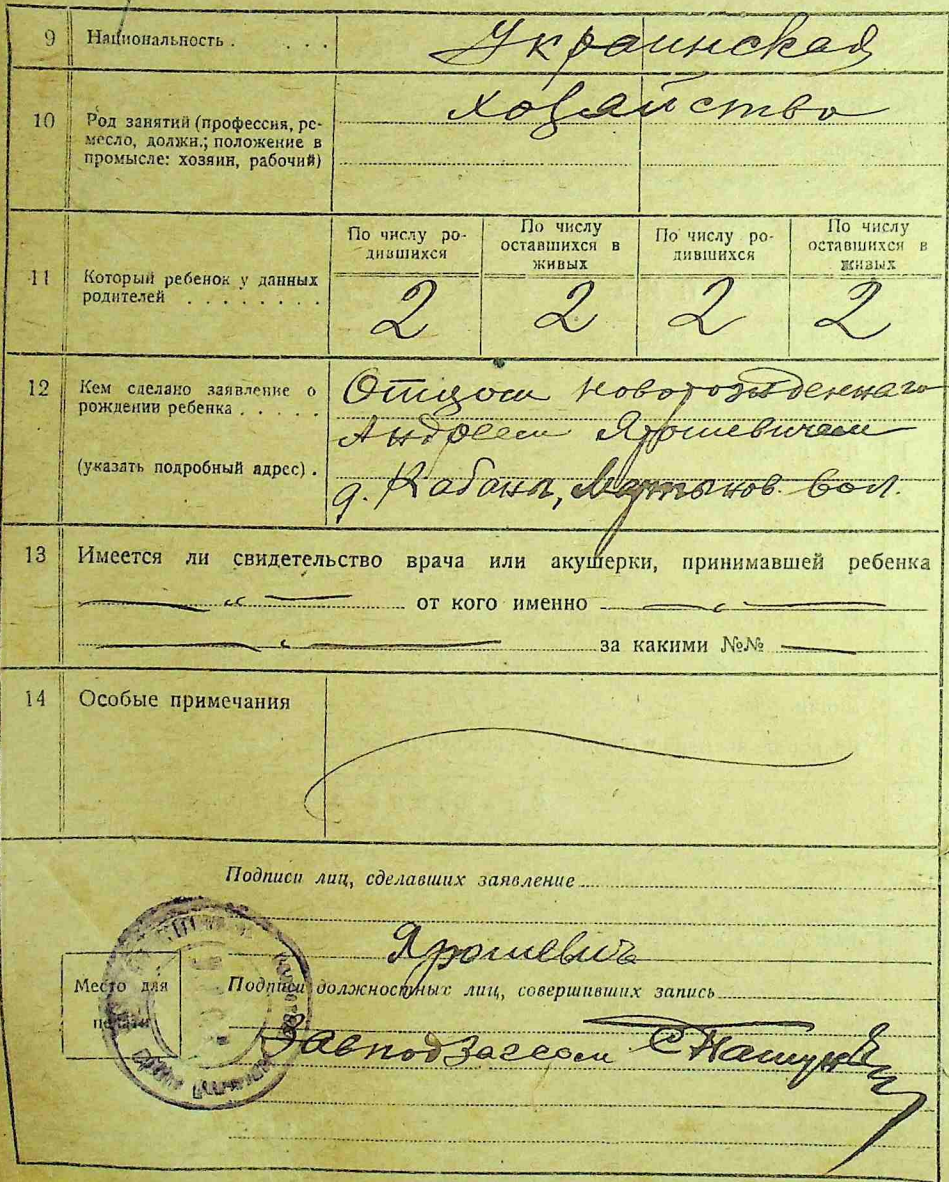 9 Национальность . . . . Украинская
10 Род занятий (профессия, ре-
месло, должн.; положение в
промысле: хозяин, рабочий)
хозяйство
11 Который ребенок у данных
родителей . . . . . . . .
По числу ро-
дившихся
По числу
оставшихся в
живых
По числу ро-
дившихся
По числу
оставшихся в
живых
2 2 2 2
12 Кем сделано заявление о
рождении ребенка . . . . .
(указать подробный адрес) .
Отцом новорожденнаго
Андреем Ярошевичем
д. Кабаки, вол.
13 Имеется ли свидетельство врача или акушерки, принимавшей ребенка
от кого именно
за какими №№
14 Особые примечания
Подписи лиц, сделавших заявление
Ярошевич
Место для
печати
Подписи должностных лиц, совершивших запись
Завподзагсом